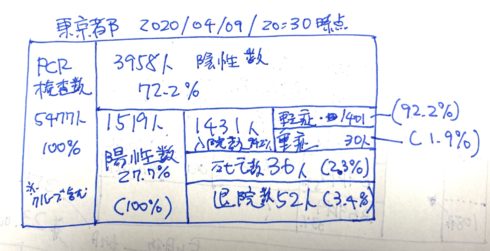 東京都 2020/04/09/20:30時点
PCR
検査数
5477人
100%
※
クルーズ含む
3958人 陰性数
72.2%
1519人
陽性数
27.7%
(100%)
1431人
入院数 94.2%
軽症・中 1401
(92.2%)
重症 30人
(1.9%)
死亡数 36人 (2.3%)
退院数 52人 (3.4%)